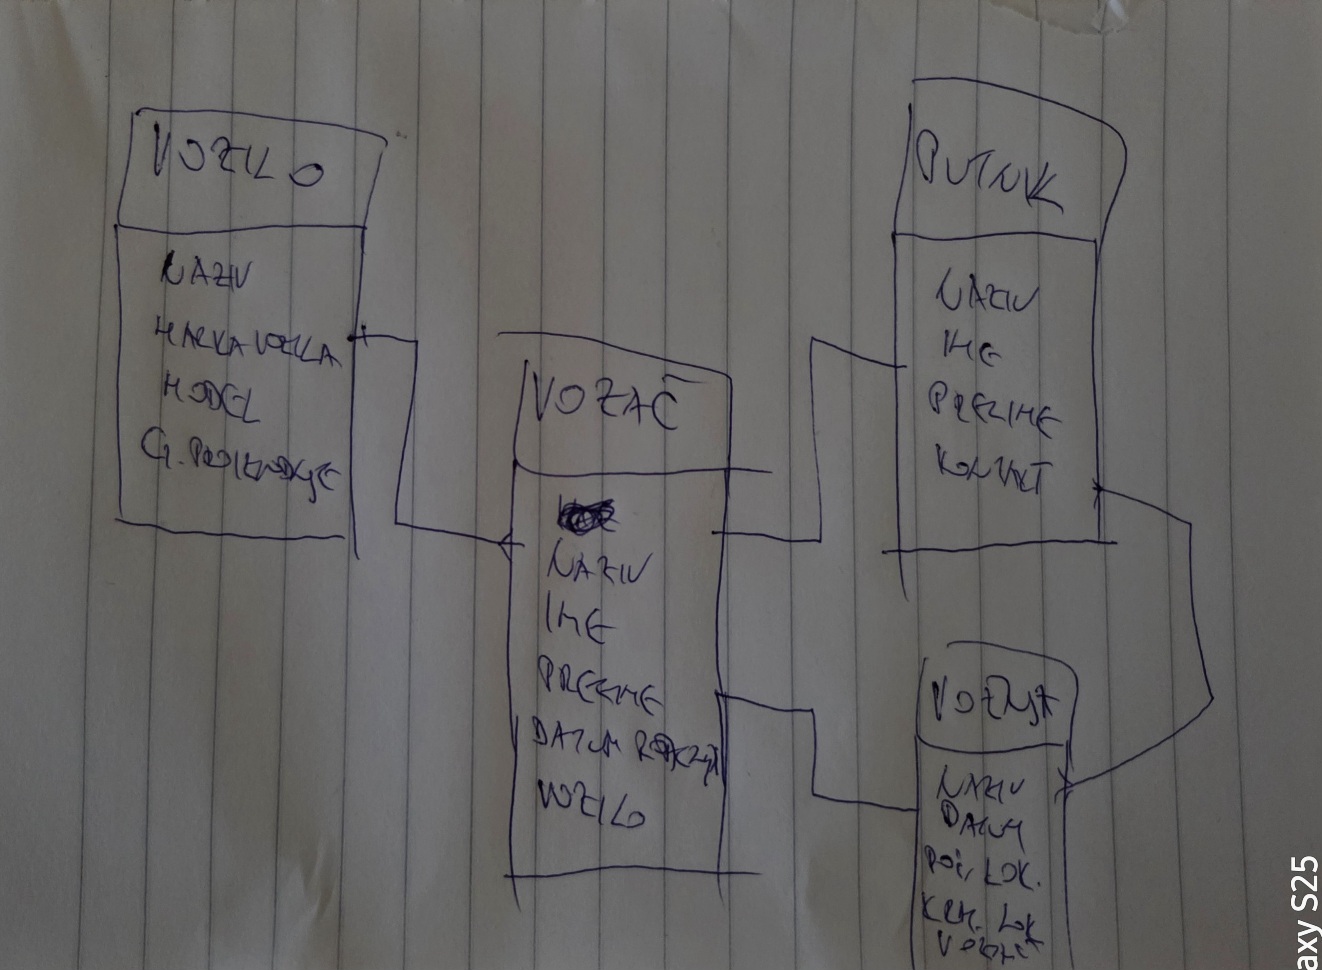 VOZILO
NAZIV
MARKA VOZILA
MODEL
G. PROIZVODNJE
VOZAČ
NAZIV
IME
PREZIME
DATUM ROĐENJA
VOZILO
PUTNIK
NAZIV
IME
PREZIME
KONTAKT
VOŽNJA
NAZIV
DATUM
POČ. LOK.
KRAJ. LOK
VOZAČ
axy S25